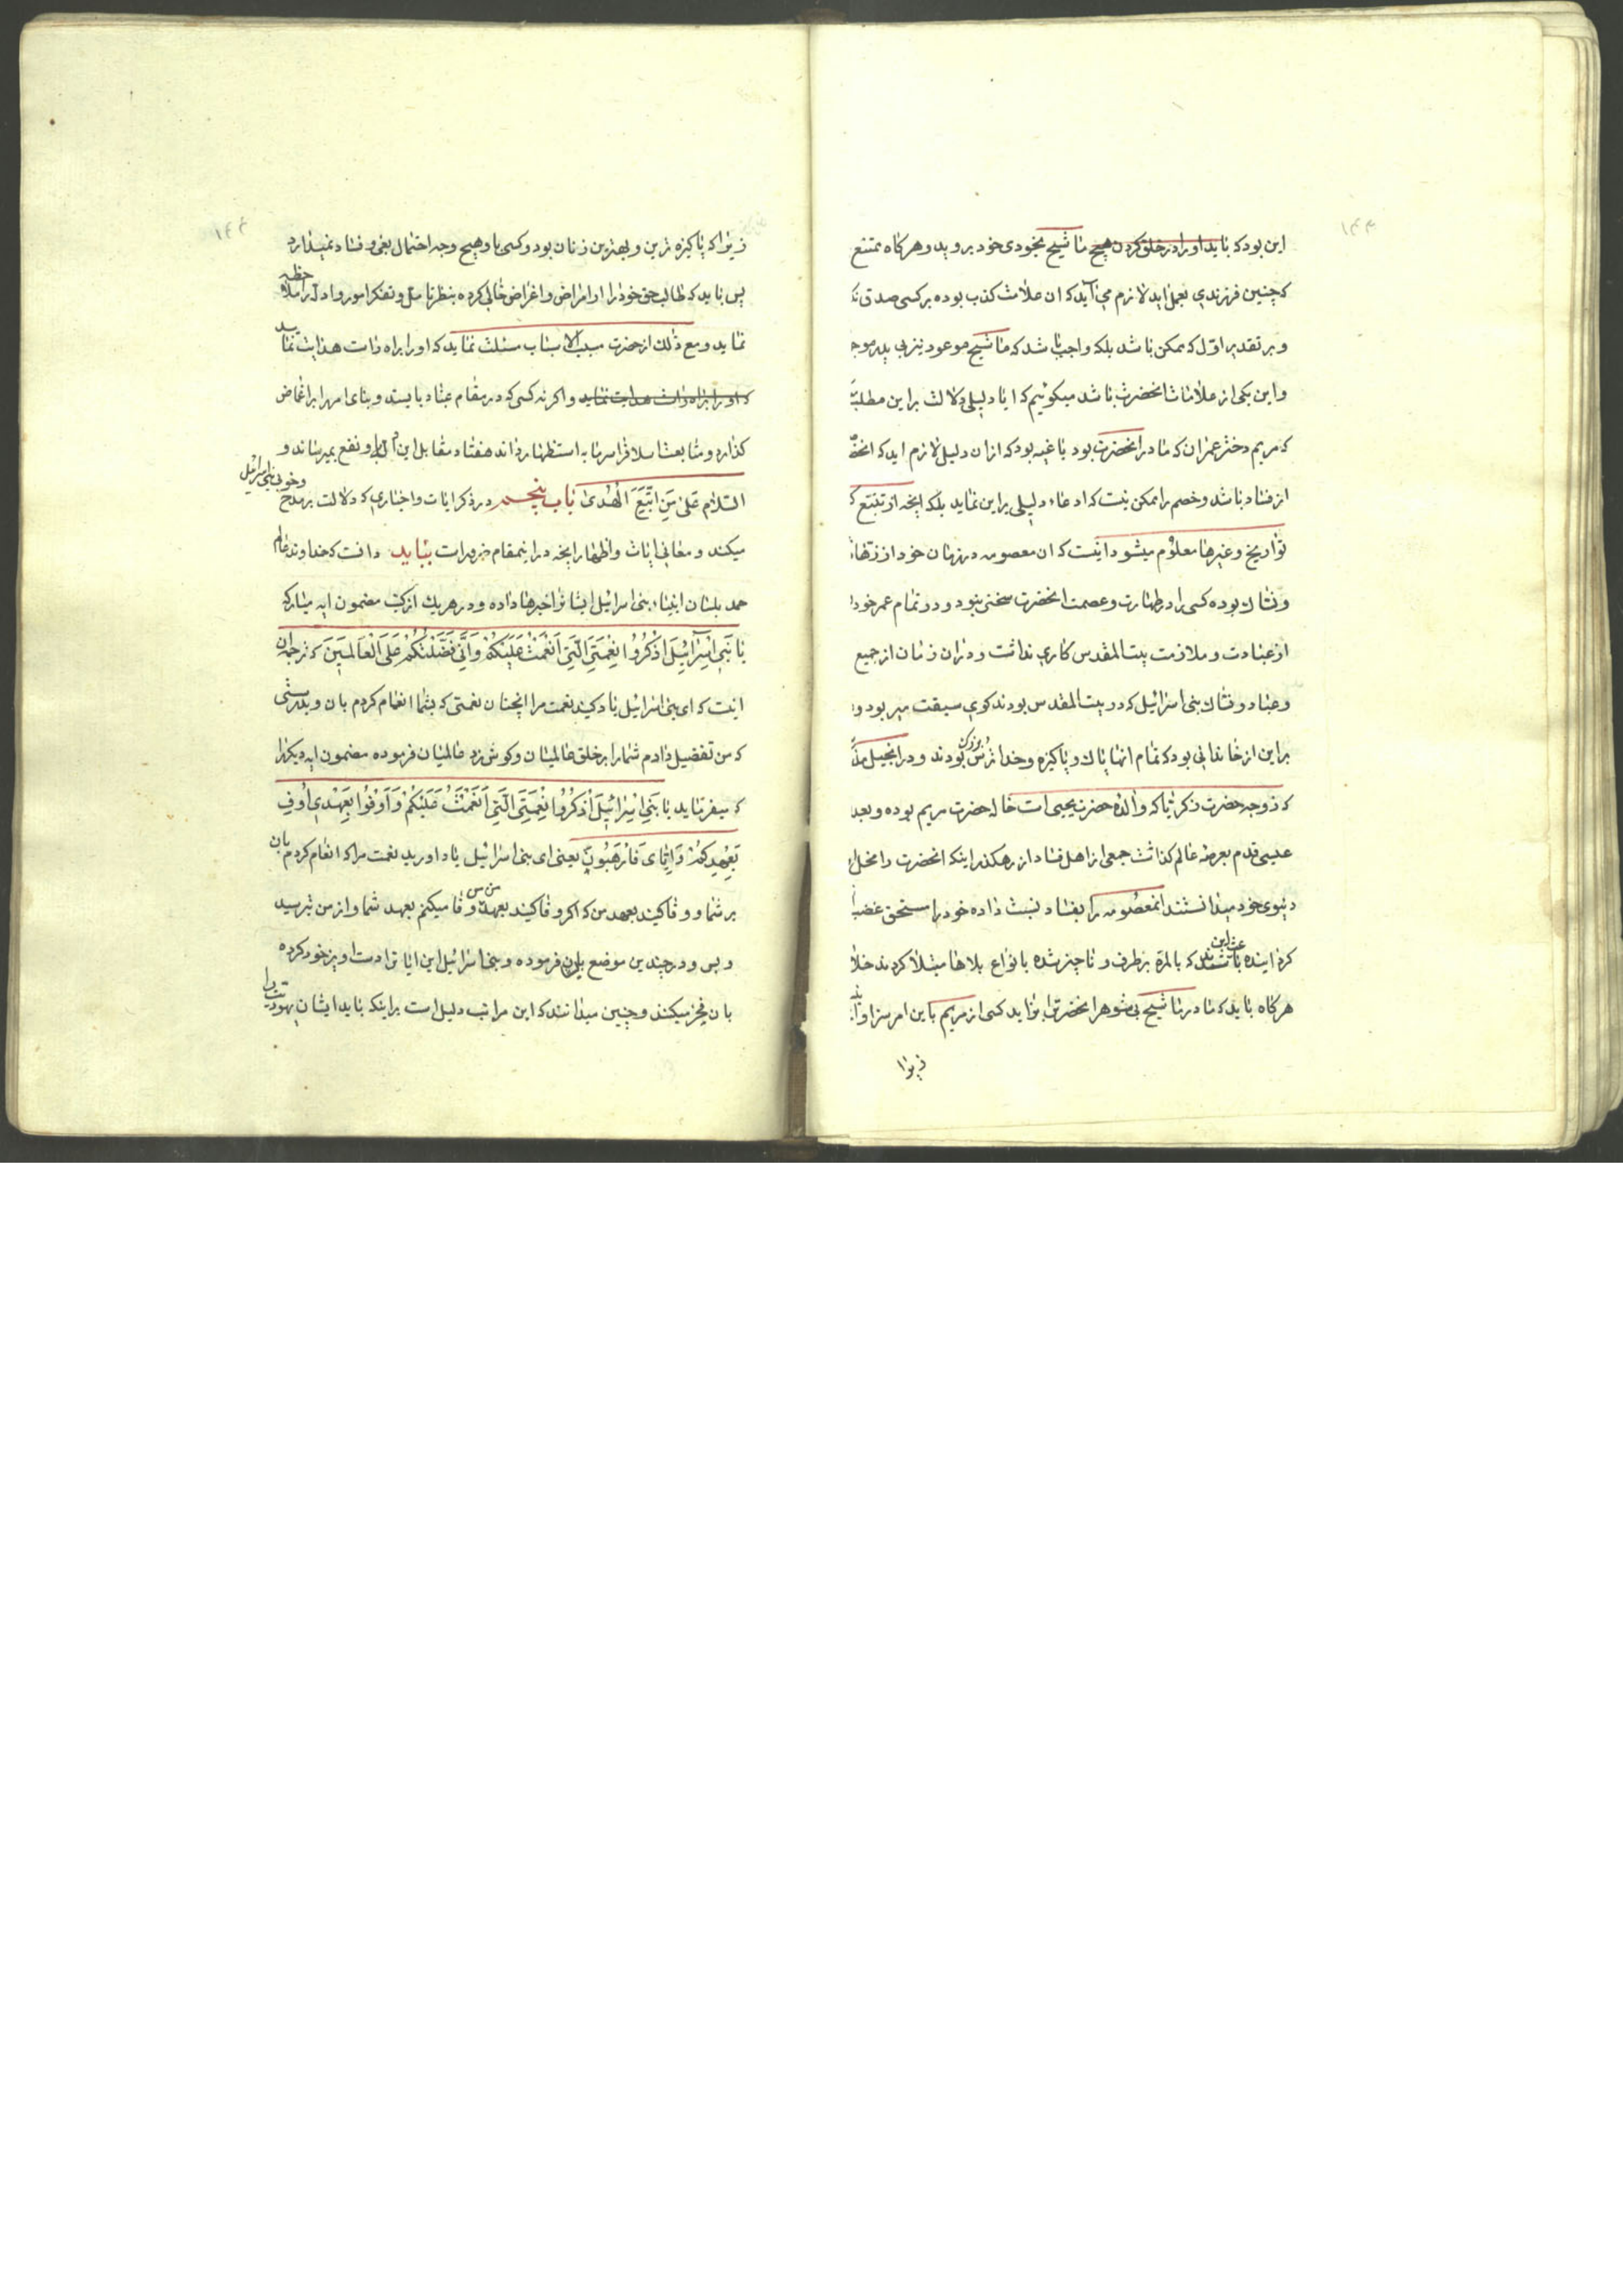 ۱۴۳
این بود که باید او را در خلق کردن هیچ ماشیح بخودی خود بروید و هرکاه ممتنع
که چنین فرزندی بعمل اید لازم می‌آید که ان علامت کذب بوده بر کسی صدق نک
و بر تقدیر اوّل که ممکن باشد بلکه واجب باشد که ماشیح موعود نیز بی پدر موجـ
و این یکی از علامات انحضرت باشد میکوئیم که ایا دلیلی دلالت بر این مطلب
که مریم دختر عمران که مادر انحضرت بود باغیه بود که از ان دلیل لازم اید که انحضـ
از فساد باشد و خصم را ممکن نیست که ادعاء دلیلی بر این نماید بلکه انچه از تتبع کـ
تواریخ و غیرها معلوم میشود اینست که ان معصومه در زمان خود از زهاد
و نساک بوده کسی را در طهارت و عصمت انحضرت سخنی نبود و در تمام عمر خود
از عبادت و ملازمت بیت المقدس کاری نداشت و در ان زمان از جمیع
و عباد و نساک بنی اسرائیل که در بیت المقدس بودند کوی سبقت میر بود و
بر این از خاندانی بود که تمام انها پاک و پاکیزه و خدا ترس بزرک بودند و در انجیل مذ
که زوجه حضرت زکریا که والدهٔ حضرت یحیی است خاله حضرت مریم بوده و بعد
عیسی قدم بعرصه عالم کذاشت جمعی از اهل فساد از رهکذر اینکه انحضرت را مخل
دنیوی خود میدانستند انمعصومه را بفساد نسبت داده خود را مستحق غضب
کردانیده باعث این شدند که بالمرة برطرف و ناچیز شده بانواع بلاها مبتلا کردند خلا
هرکاه باید که مادر ماشیح بی شوهر انحضرت را بزاید کسی از مریم باین امر سزاوار
زیرا
۱۴۴
زیرا که پاکیزه ترین و بهترین زنان بود و کسی باو هیچ وجه احتمال بغی و فساد نمیدارد
پس باید که طالب حق خود را از امراض و اغراض خالی کرده بنظر تامل و تفکر امور و ادله را ملاحظه
نماید و مع ذلک از حضرت سبب الاسباب مسئلت نماید که او را براه راست هدایت نماید
که او را براه راست هدایت نماید و اکر نه کسی که در مقام عناد بایستد و بنای امر را بر اغماض
کذارد و متابعت اسلاف را سرمایه استظهار داند هفتاد مقابل این او را نفع بمیرساند و
السّلام عَلیٰ مَنِ اتَّبَعَ الْهُدیٰ باب پنجم در ذکر ایات و اخباری که دلالت بر مدح و خوبی بنی اسرائیل
میکند و معانی ایات و اظهار انچه در اینمقام ضرور است بباید دانست که خداوند عالم
حمد بلسان انبیاء بنی اسرائیل ایشانرا خبرها داده و در هر یک از کتب مضمون ایه مبارکه
یا بَنی اِسْرائیلَ اذْکُرُوا نِعْمَتِیَ الَّتی اَنْعَمْتُ عَلَیْکُمْ وَاَنّی فَضَّلْتُکُمْ عَلَی الْعالَمینَ که ترجمه ان
اینست که ای بنی اسرائیل یاد کنید نعمت مرا انچنان نعمتی که بشما انعام کردم بان و بدرستی
که من تفضیل دادم شما را بر خلق عالمیان و کوش زد عالمیان فرموده مضمون ایه دیکر را
که میفرماید یا بَنی اِسْرائیلَ اذْکُرُوا نِعْمَتِیَ الَّتی اَنْعَمْتُ عَلَیْکُمْ وَاَوْفُوا بِعَهْدی اُوفِ
بِعَهْدِکُمْ وَاِیّایَ فَارْهَبُونِ یعنی ای بنی اسرائیل یاد اورید نعمت مرا که انعام کردم بان
بر شما و وفا کنید بعهد من که اکر وفا کنید بعهد من من وفا میکنم بعهد شما و از من بترسید
و بس و در چندین موضع بیان فرموده و بنی اسرائیل این ایاترا دست اویز خود کرده
بان فخر میکنند و چنین میدانند که این مراتب دلیل است بر اینکه باید ایشان یهودیت را